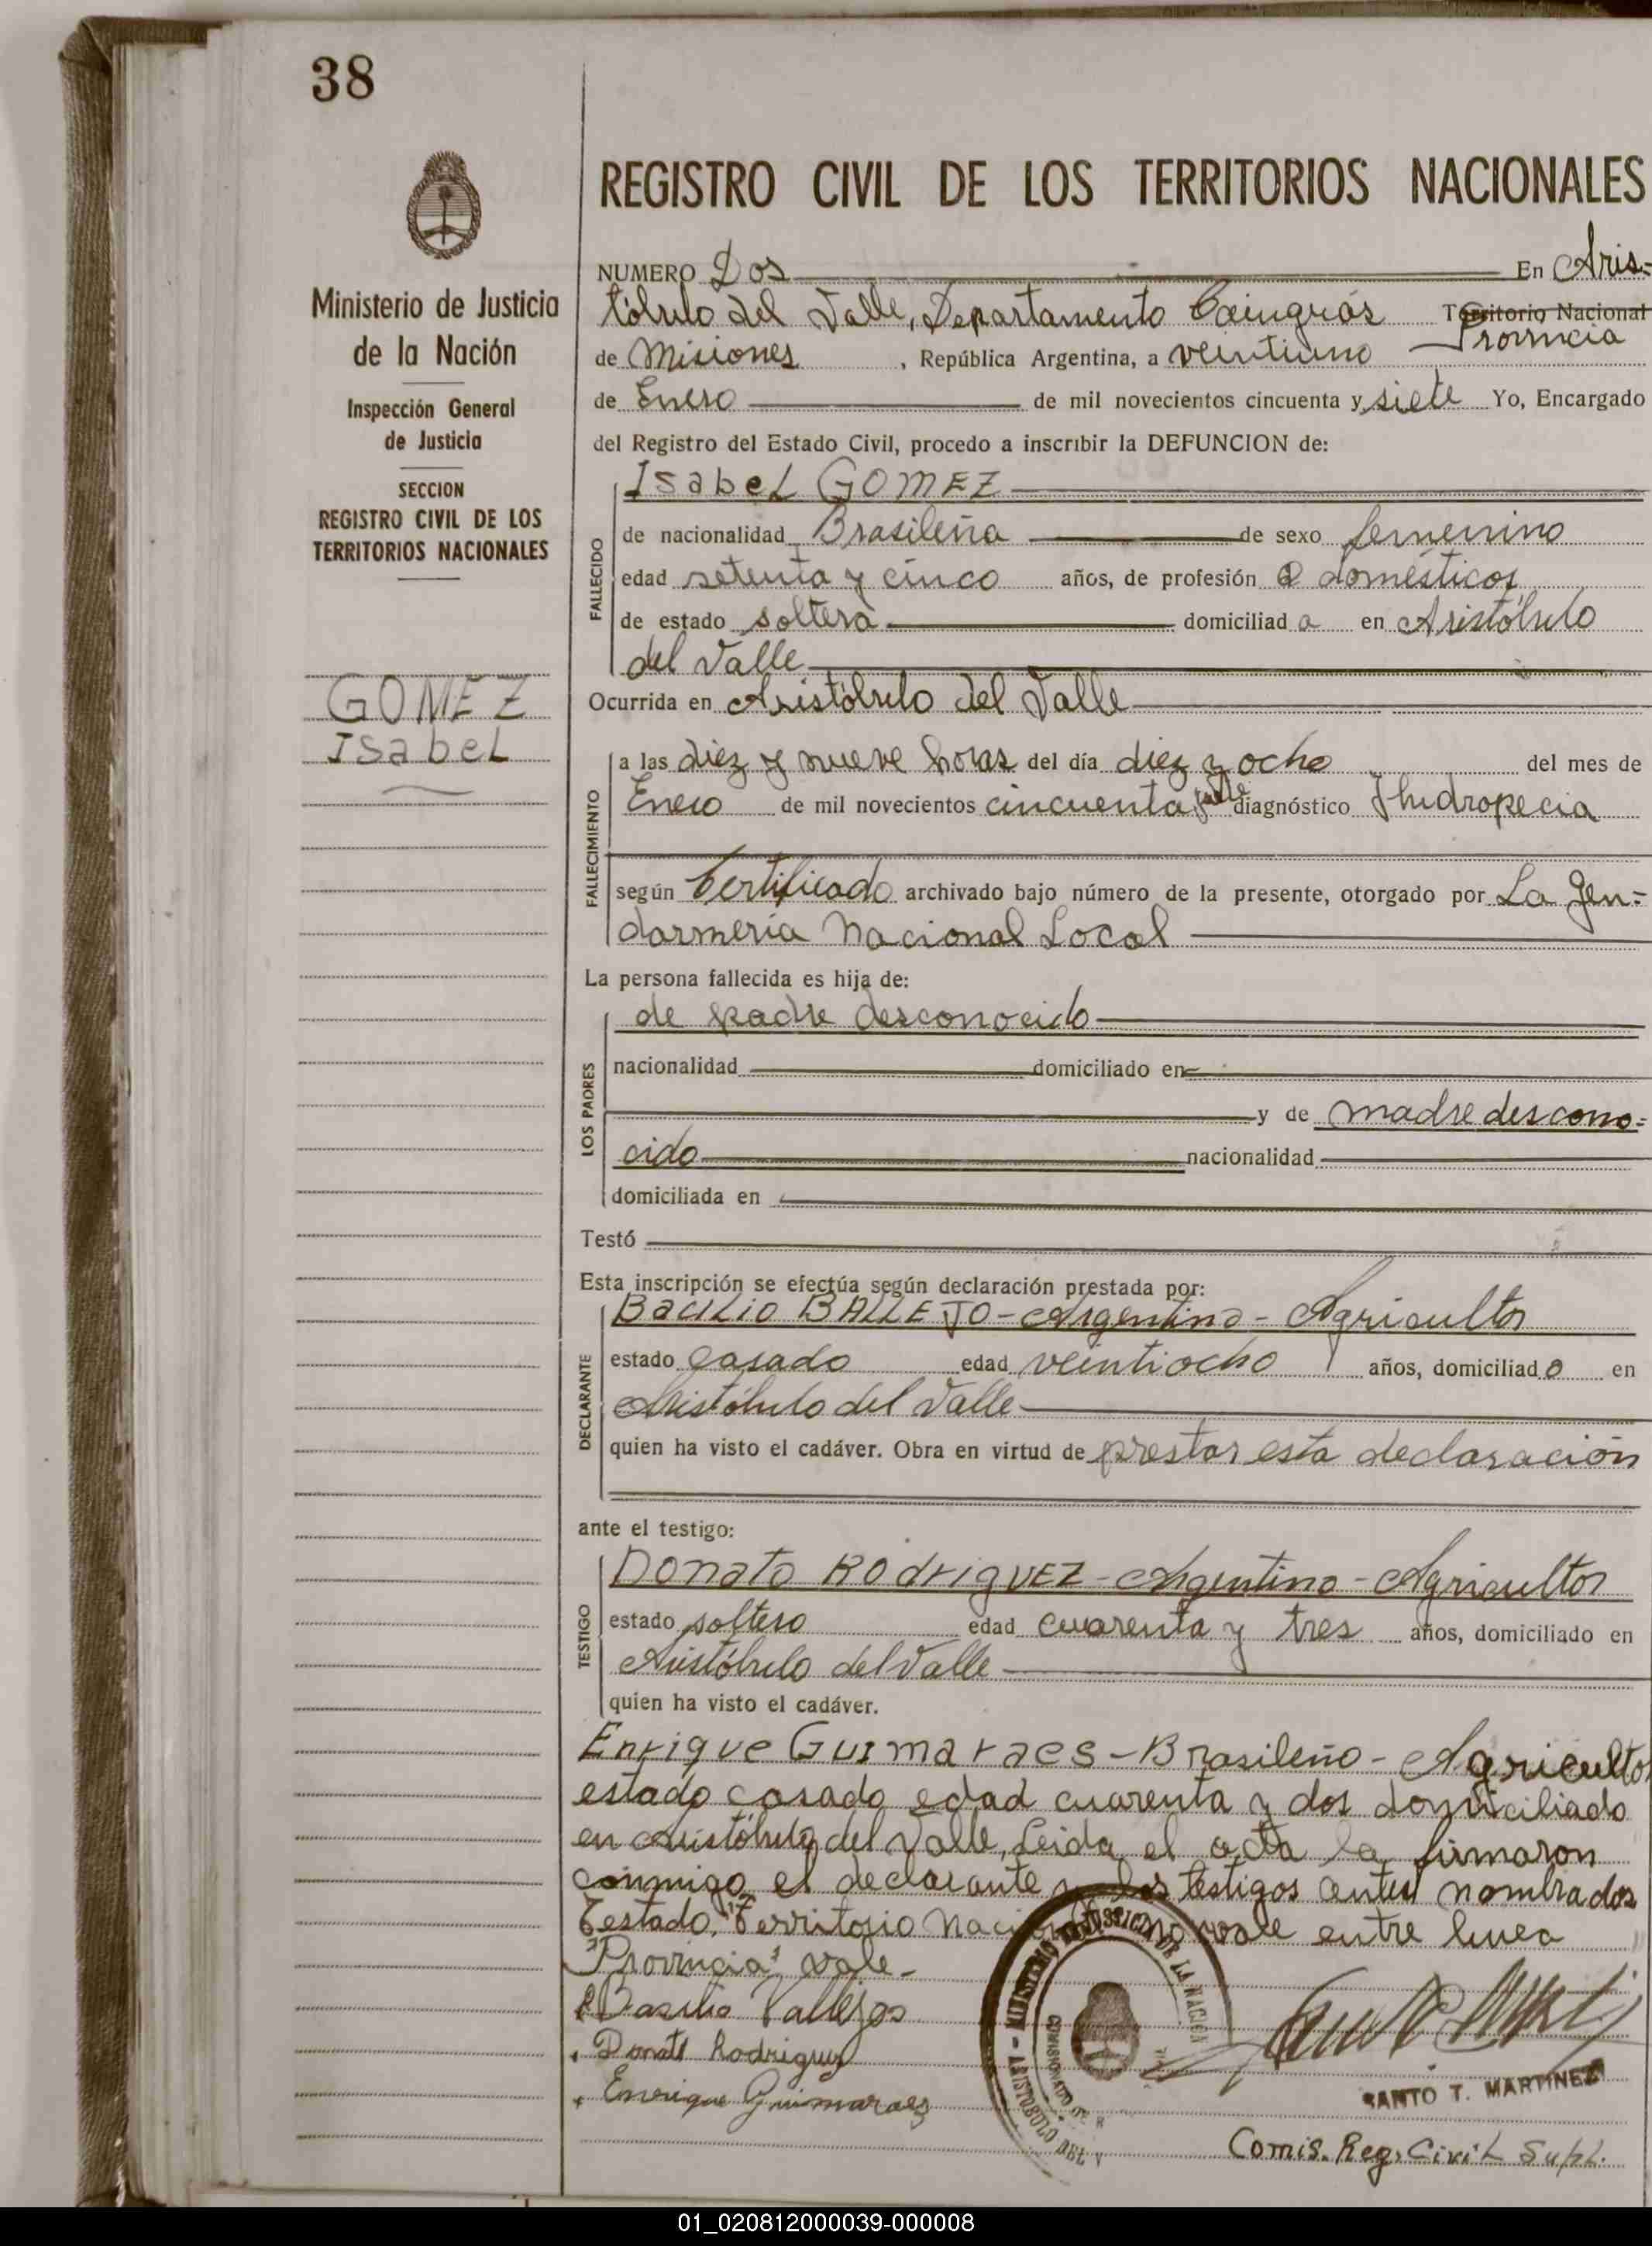 38
REGISTRO CIVIL DE LOS TERRITORIOS NACIONALES
Ministerio de Justicia
de la Nación
Inspección General
de Justicia
SECCION
REGISTRO CIVIL DE LOS
TERRITORIOS NACIONALES
GOMEZ
Isabel
NUMERO Dos En Aris-
tóbulo del Valle, Departamento Cainguás Territorio Nacional
Provincia
de Misiones, República Argentina, a veintiuno
de Enero de mil novecientos cincuenta y siete Yo, Encargado
del Registro del Estado Civil, procedo a inscribir la DEFUNCION de:
Isabel GOMEZ
FALLECIDO
de nacionalidad Brasileña de sexo femenino
edad setenta y cinco años, de profesión Q domésticos
de estado soltera domiciliad a en Aristóbulo
del Valle
Ocurrida en Aristóbulo del Valle
FALLECIMIENTO
a las diez y nueve horas del día diez y ocho del mes de
Enero de mil novecientos cincuenta y siete diagnóstico Jhidropecia
según Certificado archivado bajo número de la presente, otorgado por La Gen=
darmería Nacional Local
La persona fallecida es hija de:
LOS PADRES
de padre desconocido
nacionalidad domiciliado en
y de madre descono=
cido nacionalidad
domiciliada en
Testó
Esta inscripción se efectúa según declaración prestada por:
DECLARANTE
Bacilio BALLEJO - Argentino - Agricultor
estado casado edad veintiocho años, domiciliad o en
Aristóbulo del Valle
quien ha visto el cadáver. Obra en virtud de prestar esta declaración
ante el testigo:
TESTIGO
Donato RodriGUEZ - Argentino - Agricultor
estado soltero edad cuarenta y tres años, domiciliado en
Aristóbulo del Valle
quien ha visto el cadáver.
Enrique Guimaraes - Brasileño - Agricultor
estado casado edad cuarenta y dos domiciliado
en Aristóbulo del Valle, Leida el acta la firmaron
conmigo el declarante y los testigos antes nombrados
Testado, "Territorio Nacional" no vale entre linea
"Provincia" vale-
Basilio Vallejos
Donato Rodriguez
Enrique Guimaraes
MINISTERIO DE JUSTICIA DE LA NACION
ARISTOBULO DEL V
SANTO T. MARTINEZ
Comis. Reg. Civil Supl.
01_020812000039-000008